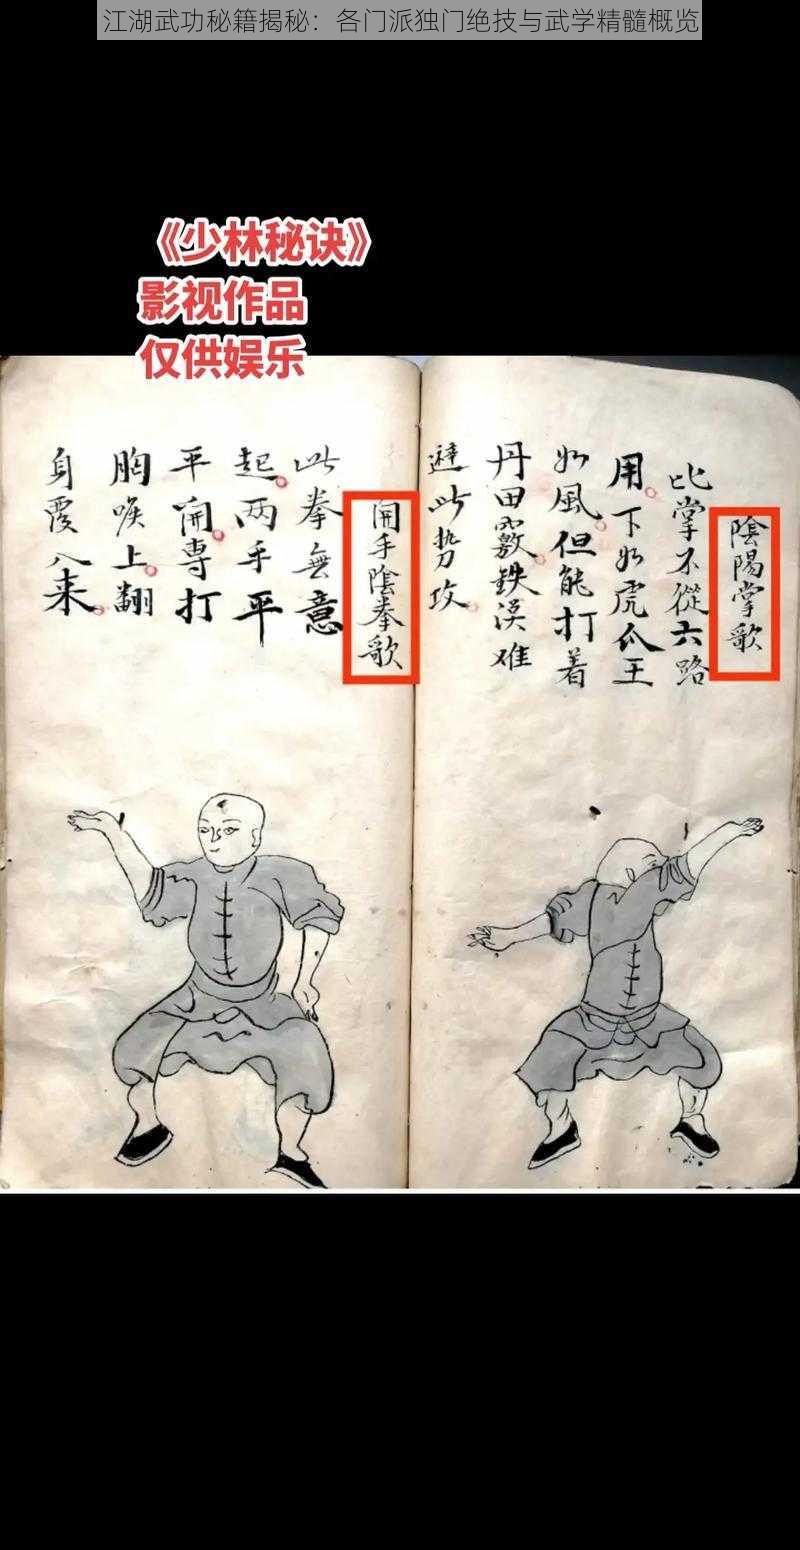 江湖武功秘籍揭秘：各门派独门绝技与武学精髓概览
《少林秘诀》
影视作品
仅供娱乐
陰陽掌歌
比掌不從六路
用下如虎爪王
如風但能打着
丹田竅鉄漢难
避此势攻
開手陰拳歌
此拳無意
起两手平
平開專打
胸喉上翻
身覆入来